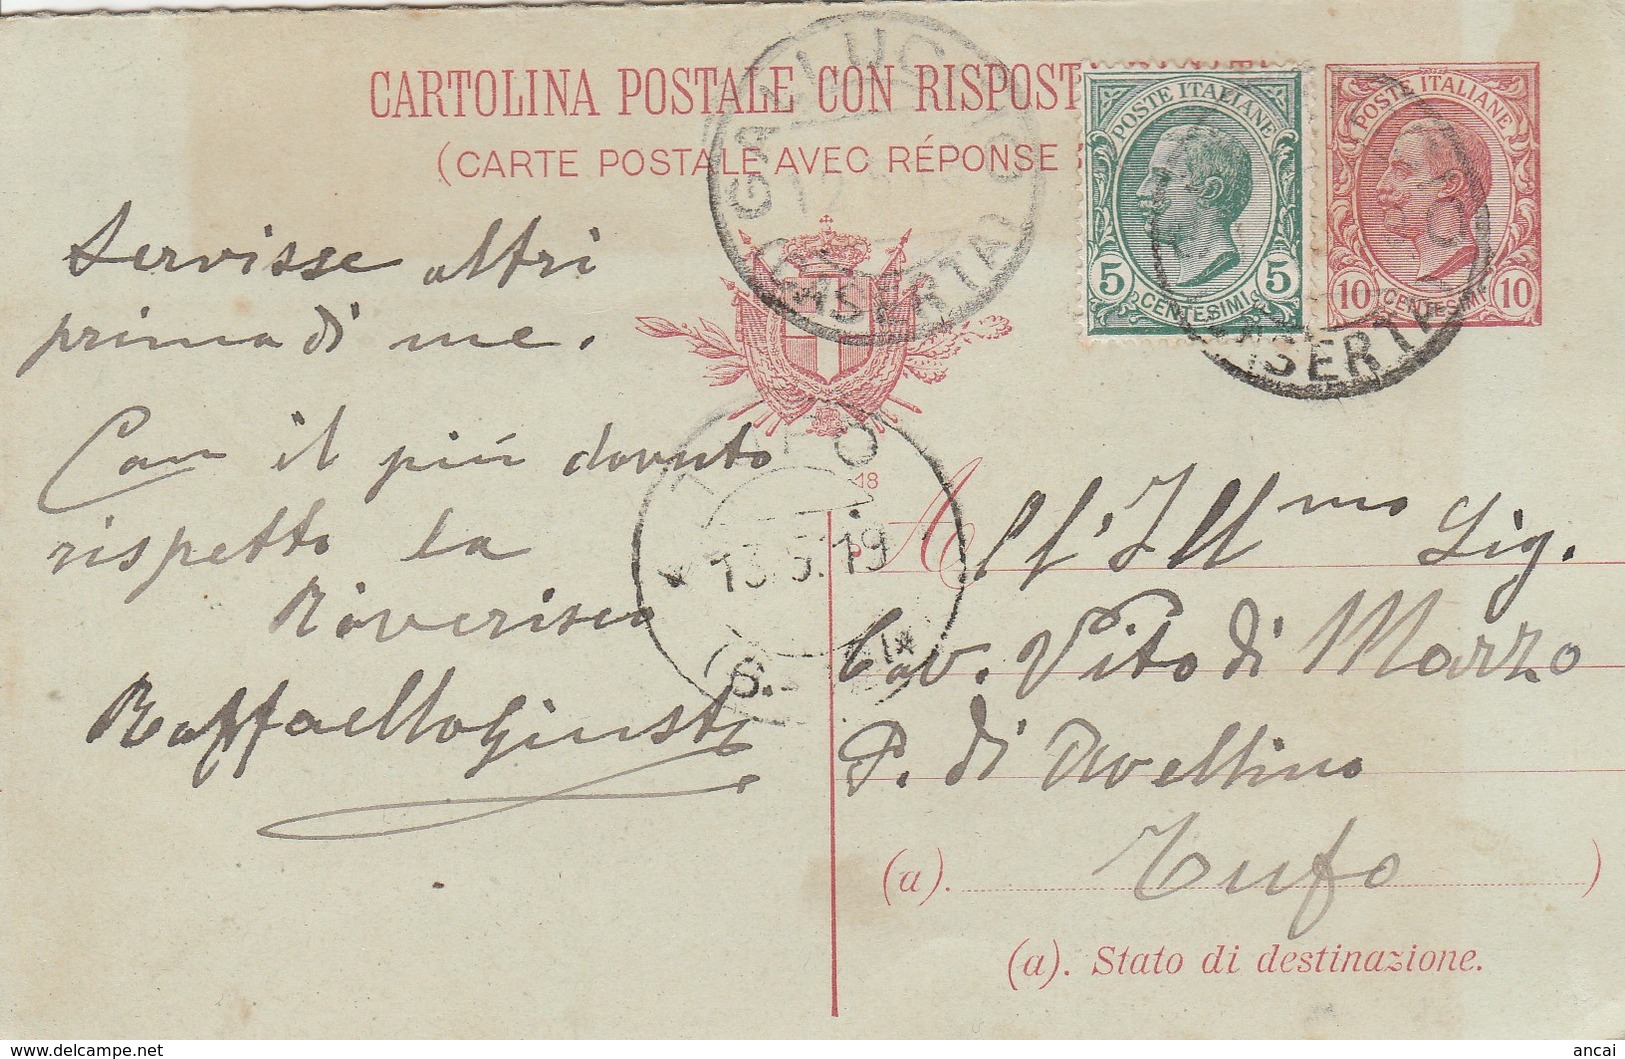 CARTOLINA POSTALE CON RISPOST
(CARTE POSTALE AVEC RÉPONSE
GALLUCCIO
(CASERTA)
POSTE ITALIANE
5 CENTESIMI 5
POSTE ITALIANE
10 CENTESIMI 10
CASERTA
servisse altri
prima di me.
Con il più dovuto
rispetto la
Riverisco
Raffaello Giusti
18
TUFO
13.5.19
All'Ill mo Sig.
Cav. Vito di Marzo
P. di Avellino
(a). Tufo )
(a). Stato di destinazione.
www.delcampe.net
ancai